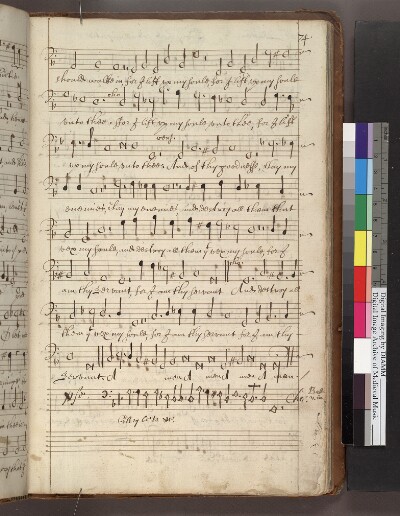 74
should walke in for I lift up my soule for I lift up my soule
cho
unto thee: for I lift up my soule unto thee, for I lift
vers:
up my soule unto thee: And of thy goodnesse, slay my
enemies, slay my enemies, and destroy all them that
vex my soule, and destroy all them yt vex my soule, for I
am thy servant for I am thy servant And destroy all
them yt vex my soule, for I am thy servant for I am thy
Servant: A men A men A men
Cho:
Digital Imaging by DIAMM
Digital Image Archive of Medieval Music